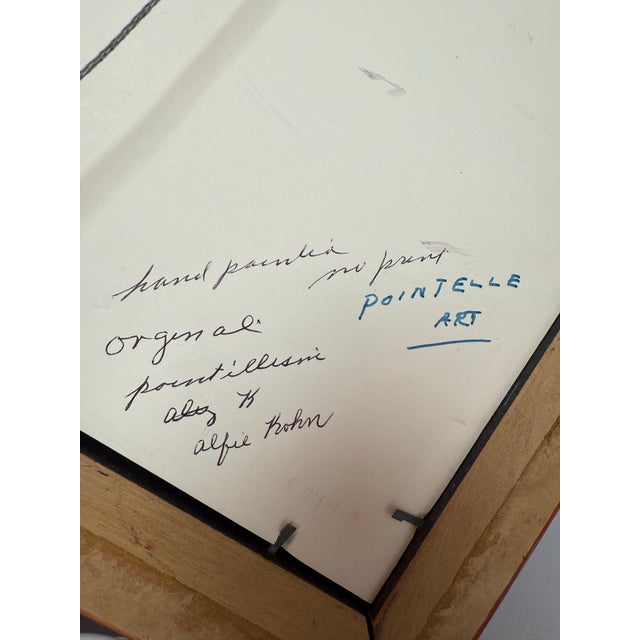 hand painted
no print
POINTELLE
ART
orginal
pointillism
K
alfie Kohn